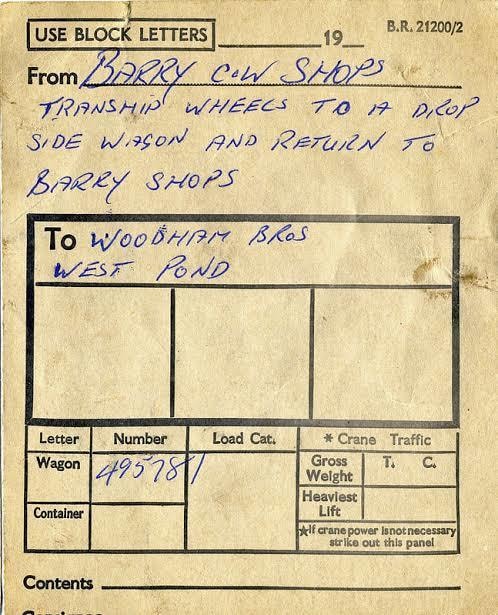 USE BLOCK LETTERS 19 B.R. 21200/2
From BARRY C&W SHOPS
TRANSHIP WHEELS TO A DROP
SIDE WAGON AND RETURN TO
BARRY SHOPS
To WOODHAM BROS
WEST POND
Letter Number Load Cat. * Crane Traffic
Wagon 495781 Gross Weight T. C.
Container Heaviest Lift
*If crane power is not necessary
strike out this panel
Contents